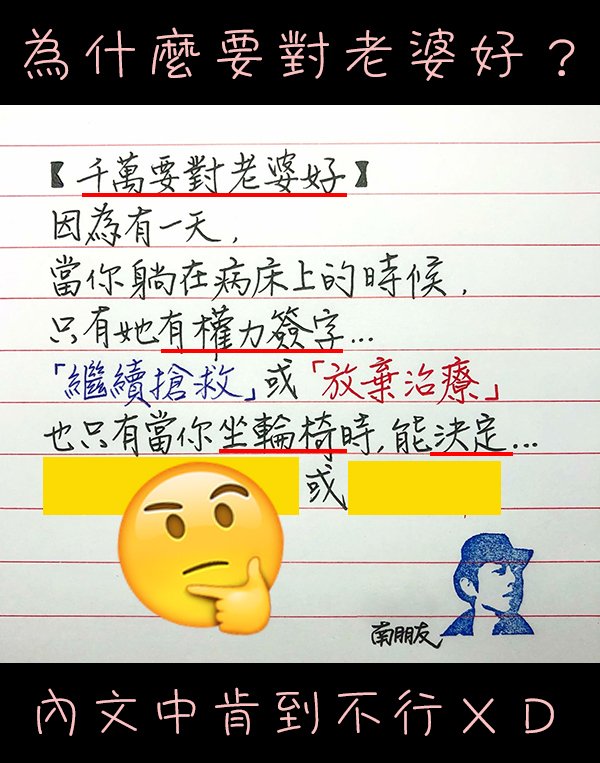 為什麼要對老婆好?
【千萬要對老婆好】
因為有一天,
當你躺在病床上的時候,
只有她有權力簽字...
「繼續搶救」或「放棄治療」
也只有當你坐輪椅時,能決定...
或
南朋友
內文中肯到不行XD